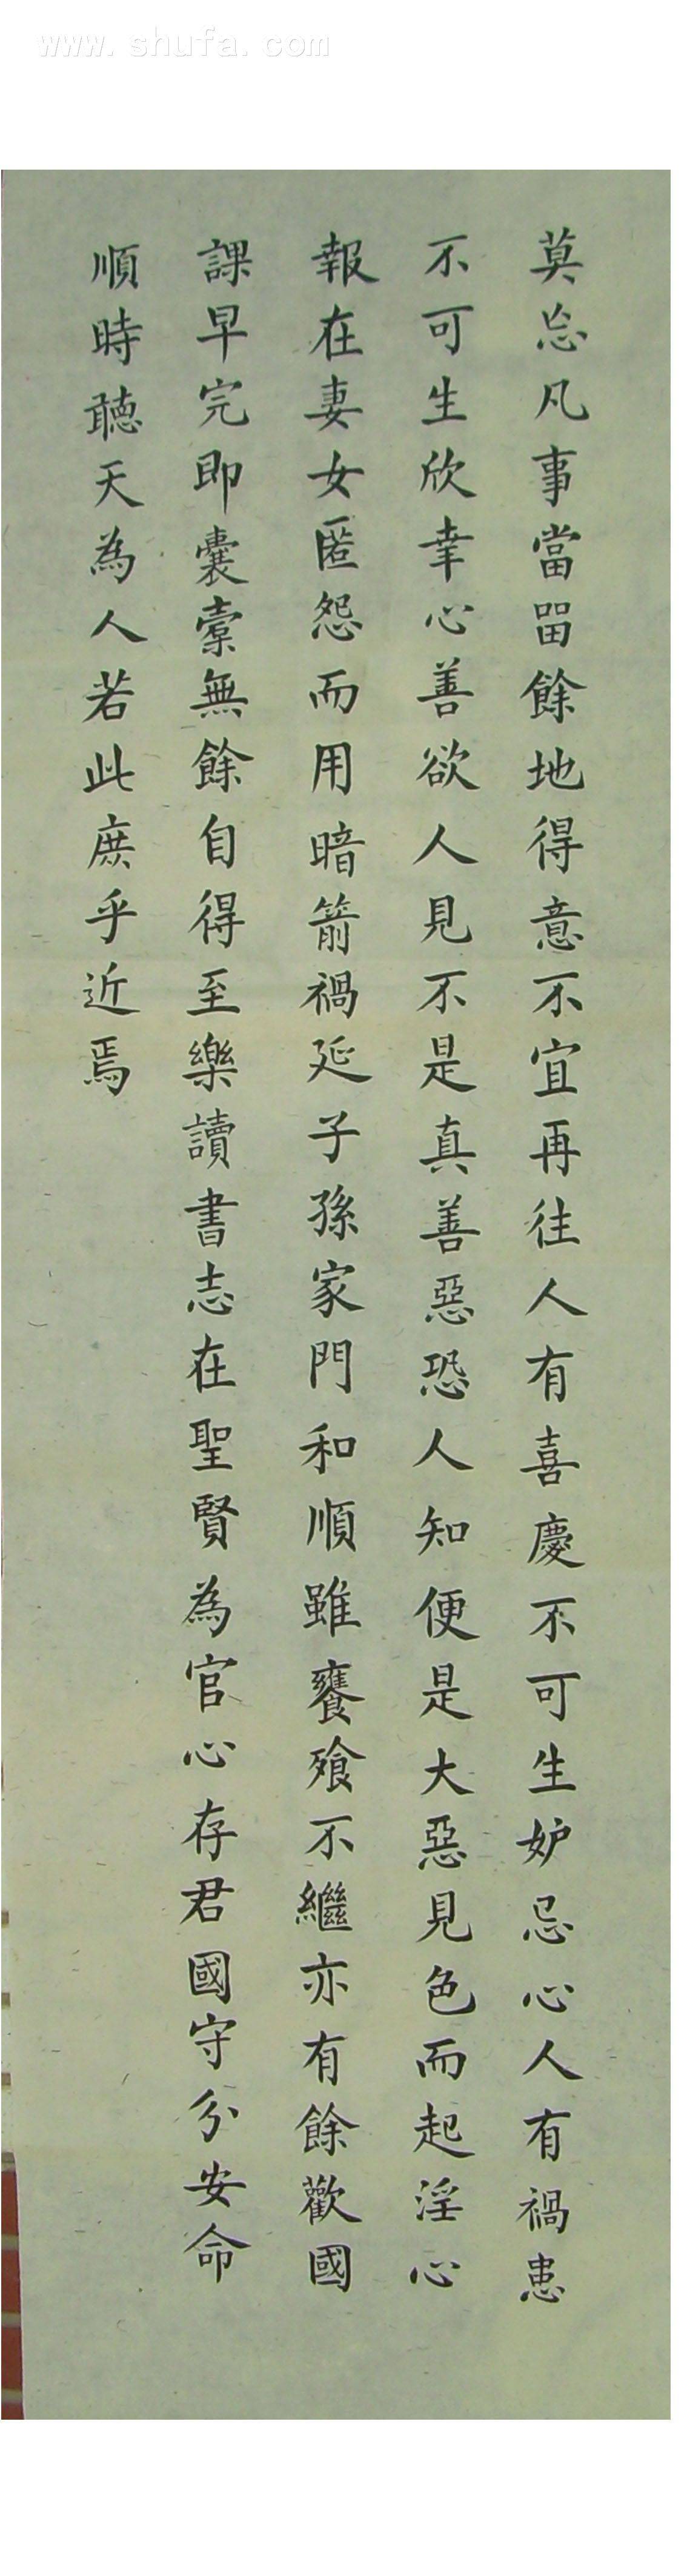 www.shufa.com
莫忘凡事當畱餘地得意不宜再往人有喜慶不可生妒忌心人有禍患
不可生欣幸心善欲人見不是真善惡恐人知便是大惡見色而起淫心
報在妻女匿怨而用暗箭禍延子孫家門和順雖饔飧不繼亦有餘歡國
課早完即囊橐無餘自得至樂讀書志在聖賢為官心存君國守分安命
順時聽天為人若此庶乎近焉